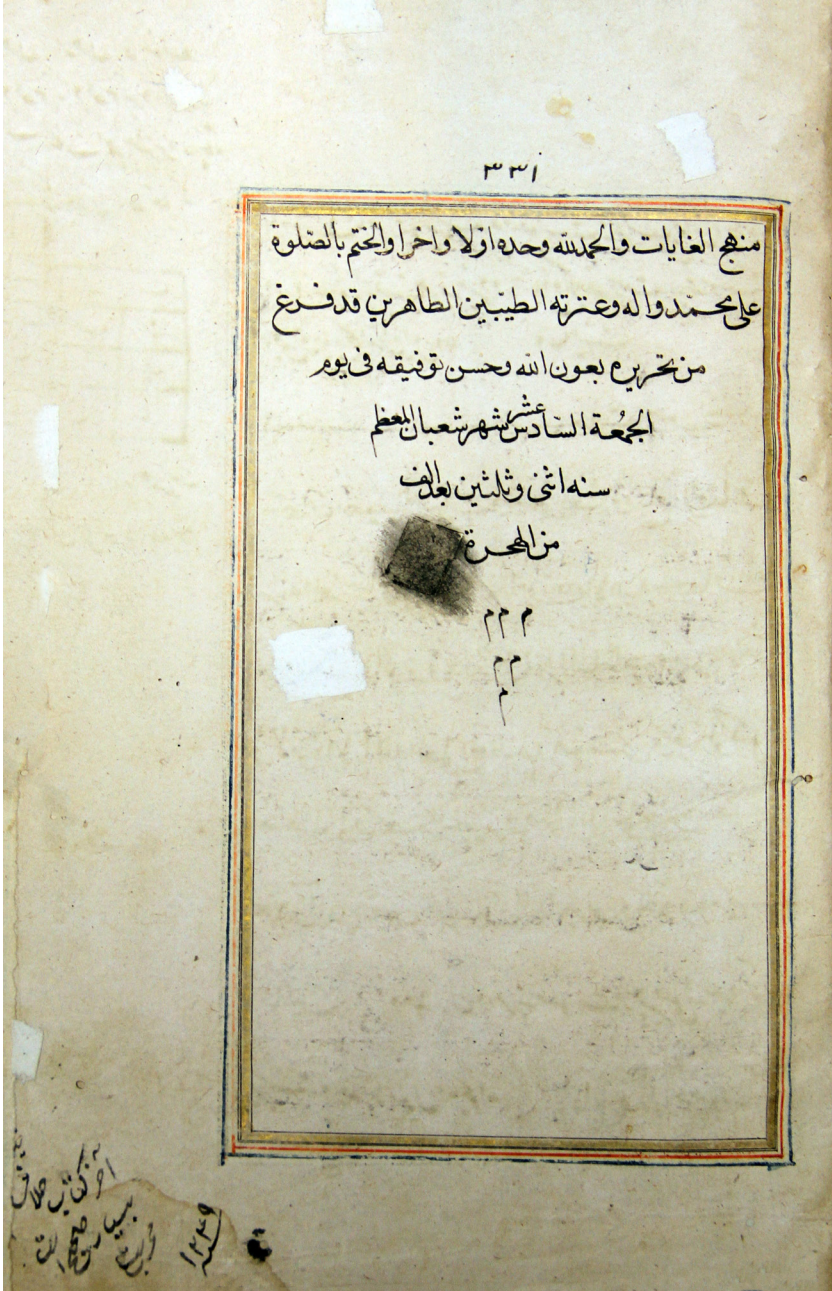 ٣٣١
منهج الغایات والحمدلله وحده اوّلا واخرا والختم بالصّلوة
علی محمّد واله وعترته الطیّبین الطاهرین قد فرغ
من تحریره بعون الله وحسن توفیقه فی یوم
الجمُعة السّادس عشر شهر شعبان المعظم
سنه اثنی وثلثین بعد الف
من الهجرة
م م م
م م
م